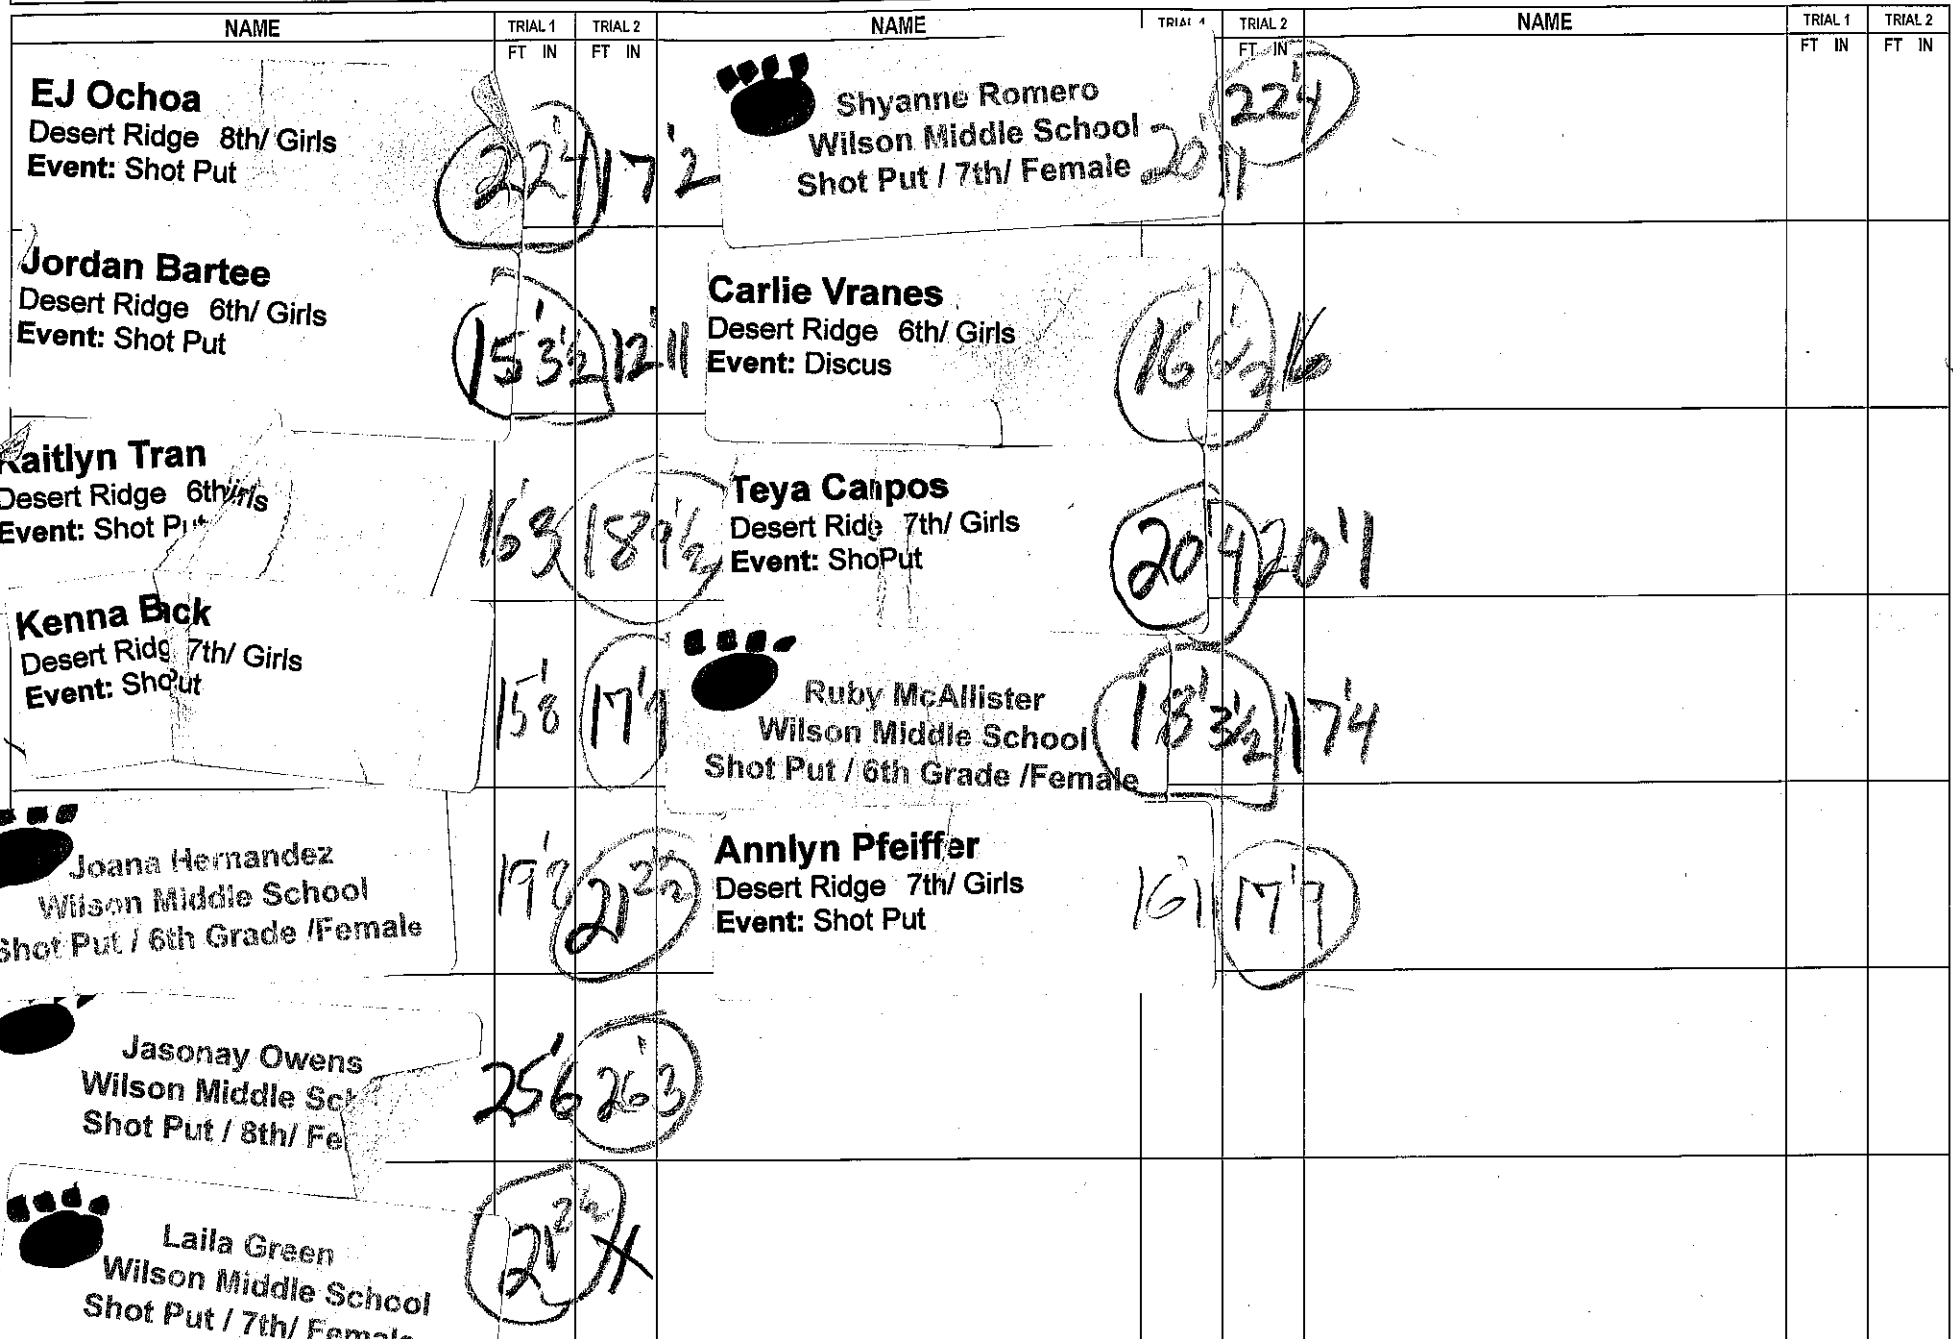 NAME TRIAL 1 TRIAL 2 NAME TRIAL 2 NAME TRIAL 1 TRIAL 2
FT IN FT IN FT IN FT IN FT IN
EJ Ochoa
Desert Ridge 8th/ Girls
Event: Shot Put
22'4 17'2
Jordan Bartee
Desert Ridge 6th/ Girls
Event: Shot Put
15'3½ 12'11
Kaitlyn Tran
Desert Ridge 6th
Event: Shot Put
16'8 18'9½
Kenna
Desert Ridg 7th/ Girls
Event:
15'8 17'9
Joana Hernandez
Wilson Middle School
Shot Put / 6th Grade /Female
19'8 21'2½
Jasonay Owens
Wilson Middle Sch
Shot Put / 8th/ Fe
25'6 26'3
Laila Green
Wilson Middle School
Shot Put / 7th/ Female
21'2½ X
Shyanne Romero
Wilson Middle School
Shot Put / 7th/ Female
20'11 22'4
Carlie Vranes
Desert Ridge 6th/ Girls
Event: Discus
16' 16
Teya Campos
Desert Ridg 7th/ Girls
Event: Sho Put
20'4 20'1
Ruby McAllister
Wilson Middle School
Shot Put / 6th Grade /Female
18'3½ 17'4
Annlyn Pfeiffer
Desert Ridge 7th/ Girls
Event: Shot Put
16'1 17'9